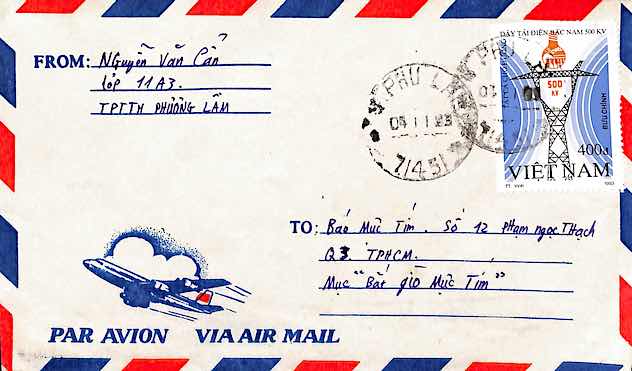 FROM: Nguyễn Văn Cần
Lớp 11A3.
TPTTH PHƯƠNG LÂM
DÂY TẢI ĐIỆN BẮC NAM 500 KV
500
KV
BƯU CHÍNH
400đ
VIỆT NAM
PHU LAM
71451
TO: Báo Mực Tím. Số 12 Phạm ngọc Thạch
Q3. TPHCM.
Mục "Bắt giò Mực Tím"
PAR AVION VIA AIR MAIL